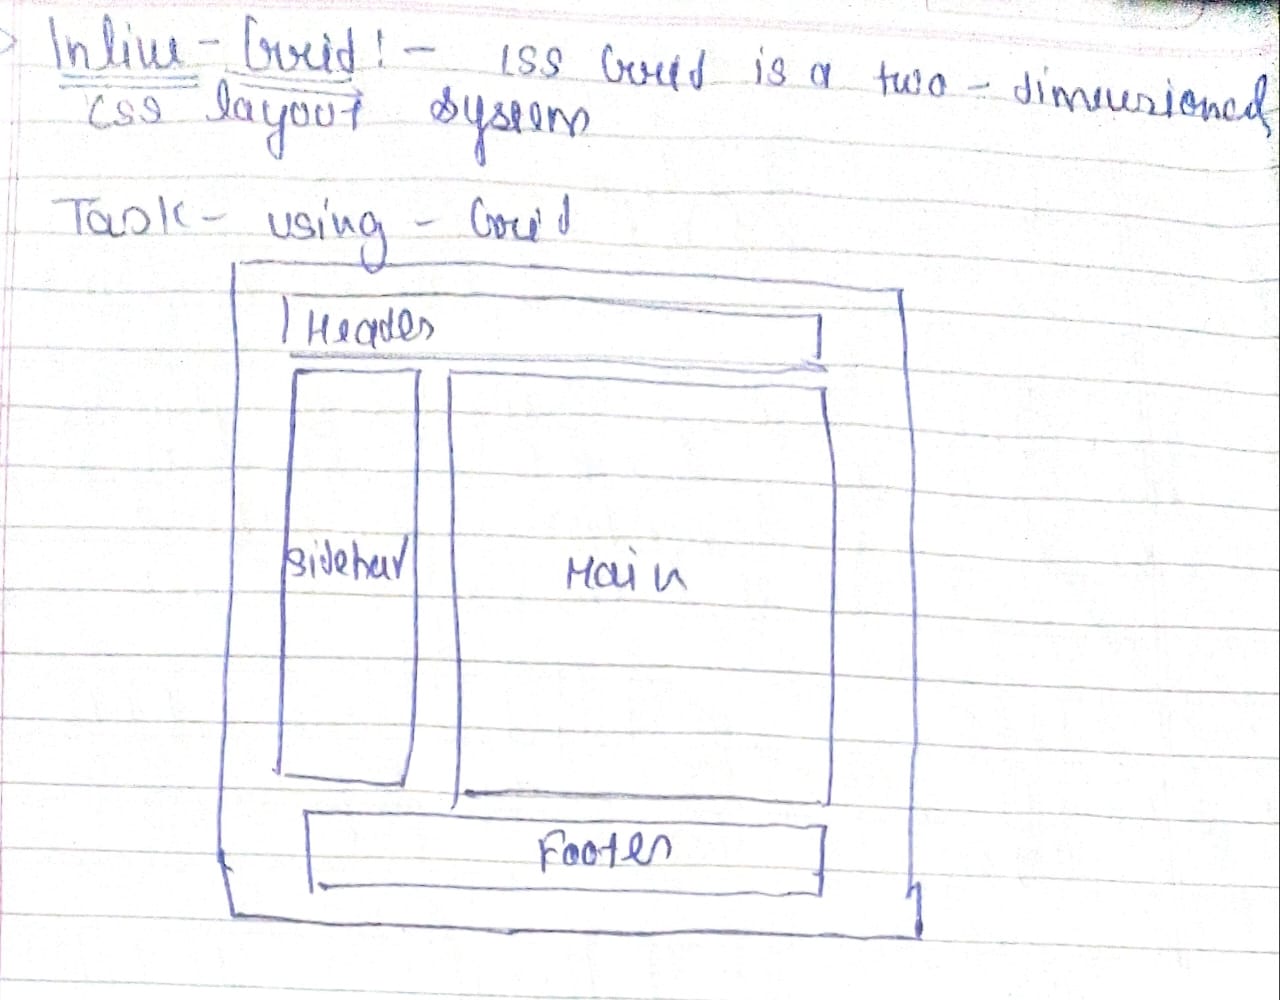 Inline - Grid :- CSS Grid is a two - dimensional
CSS layout system
Task - using - Grid
Header
Sidebar
Main
Footer